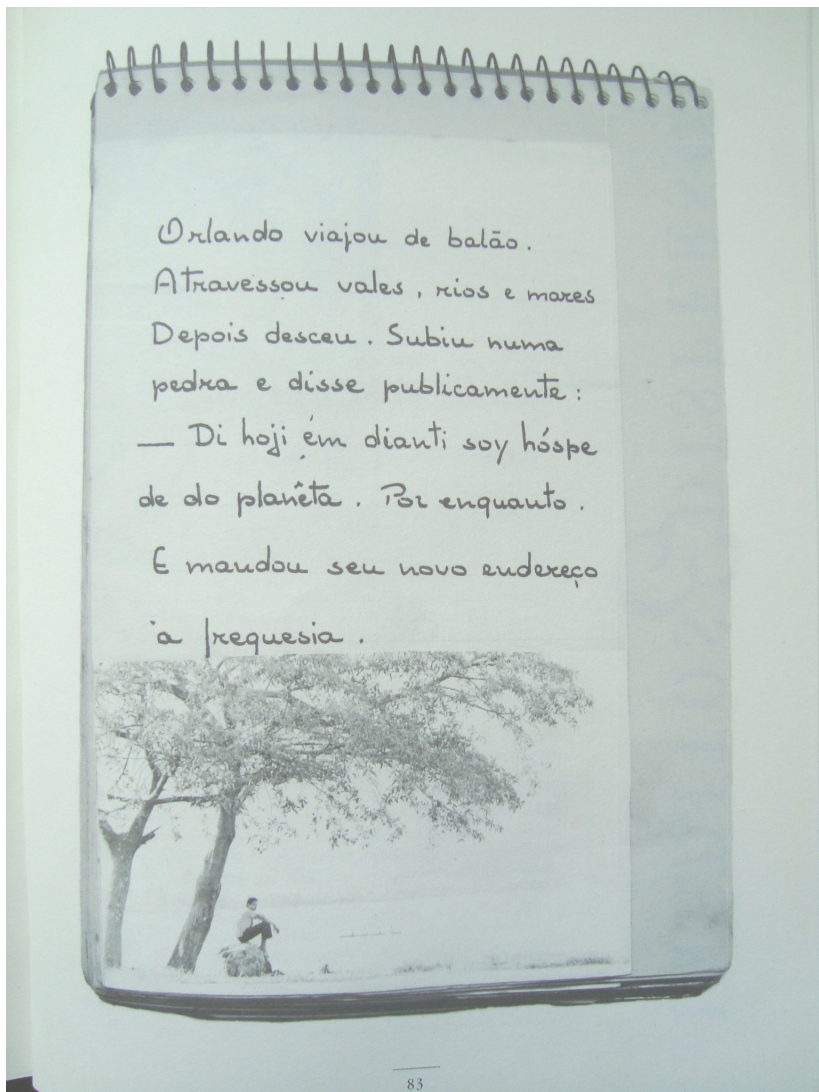 Orlando viajou de balão.
Atravessou vales, rios e mares
Depois desceu. Subiu numa
pedra e disse publicamente:
— Di hoji ém dianti soy hóspe
de do planêta. Por enquanto.
E mandou seu novo endereço
à freguesia.
83